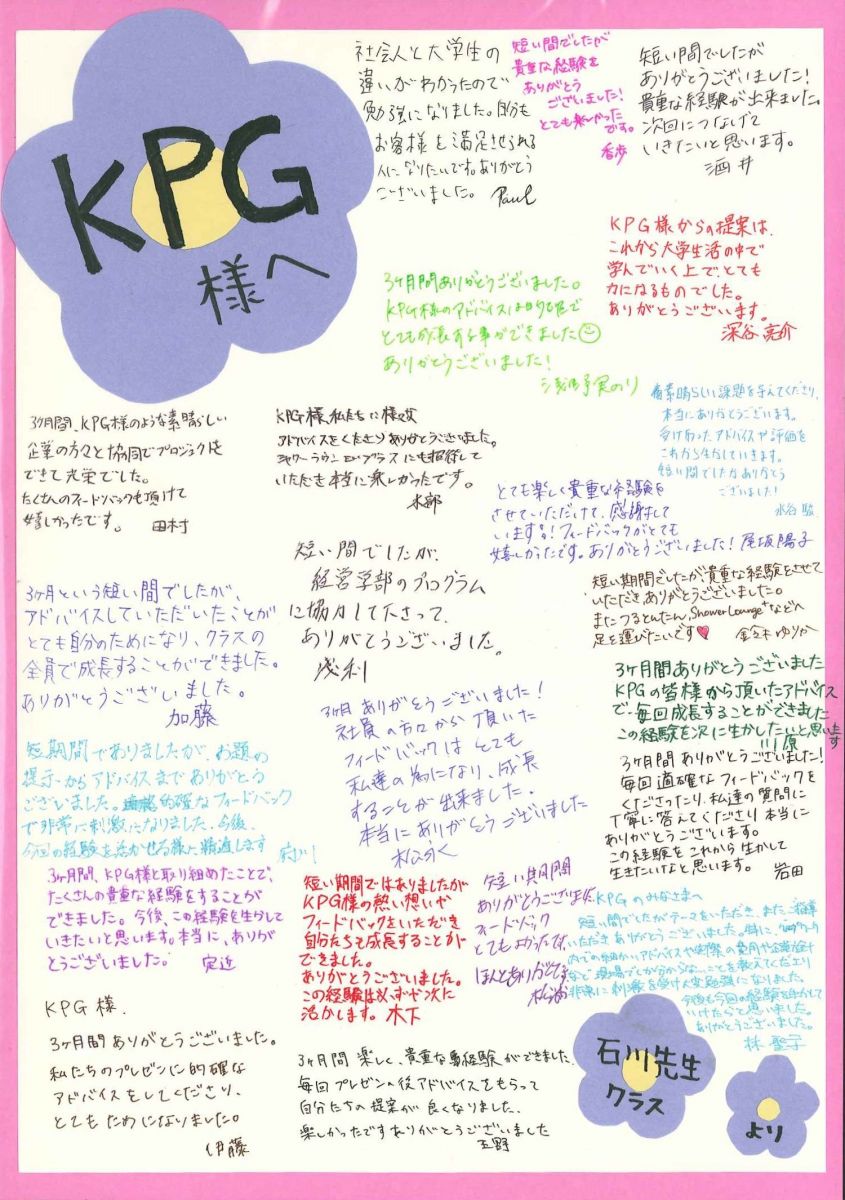 KPG
様へ
社会人と大学生の
違いがわかったので
勉強になりました。自分も
お客様を満足させられる
人になりたいです。ありがとう
ございました。 Paul
短い間でしたが
貴重な経験を
ありがとう
ございました!
とても楽しかった
です。
香歩
短い間でしたが
ありがとうございました!
貴重な経験が出来ました。
次回につなげて
いきたいと思います。
酒井
KPG様からの提案は、
これから大学生活の中で
学んでいく上で、とても
力になるものでした。
ありがとうございます。
深谷亮介
3ヶ月間ありがとうございました。
KPG様のアドバイスは的確で
とても成長する事ができました☺
ありがとうございました!
実のり
素晴らしい課題を与えてくださり、
本当にありがとうございます。
受け取ったアドバイスや評価を
これから生かしていきます。
短い間でしたがありがとう
ございました!
水谷 駿
3ヶ月間、KPG様のような素晴らしい
企業の方々と協同でプロジェクトを
できて光栄でした。
たくさんのフィードバックも頂けて
嬉しかったです。 田村
KPG様、私たちに様々な
アドバイスをくださりありがとうございました。
シャワーラウンジプラスにも招待して
いただき本当に楽しかったです。
水部
とても楽しく貴重な経験を
させていただけて、感謝して
います!フィードバックがとても
嬉しかったです。ありがとうございました!尾坂陽子
短い間でしたが、
経営学部のプログラム
に協力して下さって、
ありがとうございました。
浅利
短い期間でしたが、貴重な経験をさせて
いただき、ありがとうございました。
またつるとんたん、Shower Lounge+などへ
足を運びたいです♥ 金子 ゆりか
3ヶ月という短い間でしたが、
アドバイスしていただいたことが
とても自分のためになり、クラスの
全員で成長することができました。
ありがとうございました。
加藤
3ヶ月間ありがとうございました
KPGの皆様から頂いたアドバイス
で、毎回成長することができました
この経験を次に生かしたいと思います
川原
3ヶ月 ありがとうございました!
社員の方々から頂いた
フィードバックはとても
私達の為になり、成長
することが出来ました.
本当にありがとうございました
松永
3ヶ月間ありがとうございました!
毎回適確なフィードバックを
くださったり、私達の質問に
丁寧に答えてくださり本当に
ありがとうございます。
この経験をこれから生かして
生きたいなと思います。 岩田
短期間でありましたが、お題の
提示からアドバイスまでありがとう
ございました。的確なフィードバック
で非常に刺激になりました。今後、
今回の経験を活かせる様に精進します
3ヶ月間、KPG様と取り組めたことで、
たくさんの貴重な経験をすることが
できました。今後、この経験を生かして
いきたいと思います。本当に、ありが
とうございました。 定近
短い期間ではありましたが
KPG様の熱い想いや
フィードバックをいただき
自分たちも成長することが
できました。
ありがとうございました。
この経験は必ずや次に
活かします。木下
短い期間
ありがとうございました。
フィードバック
とてもよかったです。
ほんとありがとです。
KPGのみなさまへ
短い間でしたがテーマをいただき、またご指導
いただきありがとうございました。特に、
内での細かいアドバイスや実際の費用や企業
など現場でしか分からないことを教えてくださり
非常に刺激を受け大変勉強になりました。
今後も今回の経験を生かして
いけたらと思いました。
ありがとうございました。
林 聖子
KPG様.
3ヶ月間ありがとうございました。
私たちのプレゼンに的確な
アドバイスをしてくださり、
とてもためになりました。
伊藤
3ヶ月間 楽しく、貴重な経験ができました.
毎回プレゼンの後アドバイスをもらって
自分たちの提案が良くなりました.
楽しかったですありがとうございました
玉野
石川先生
クラス
より